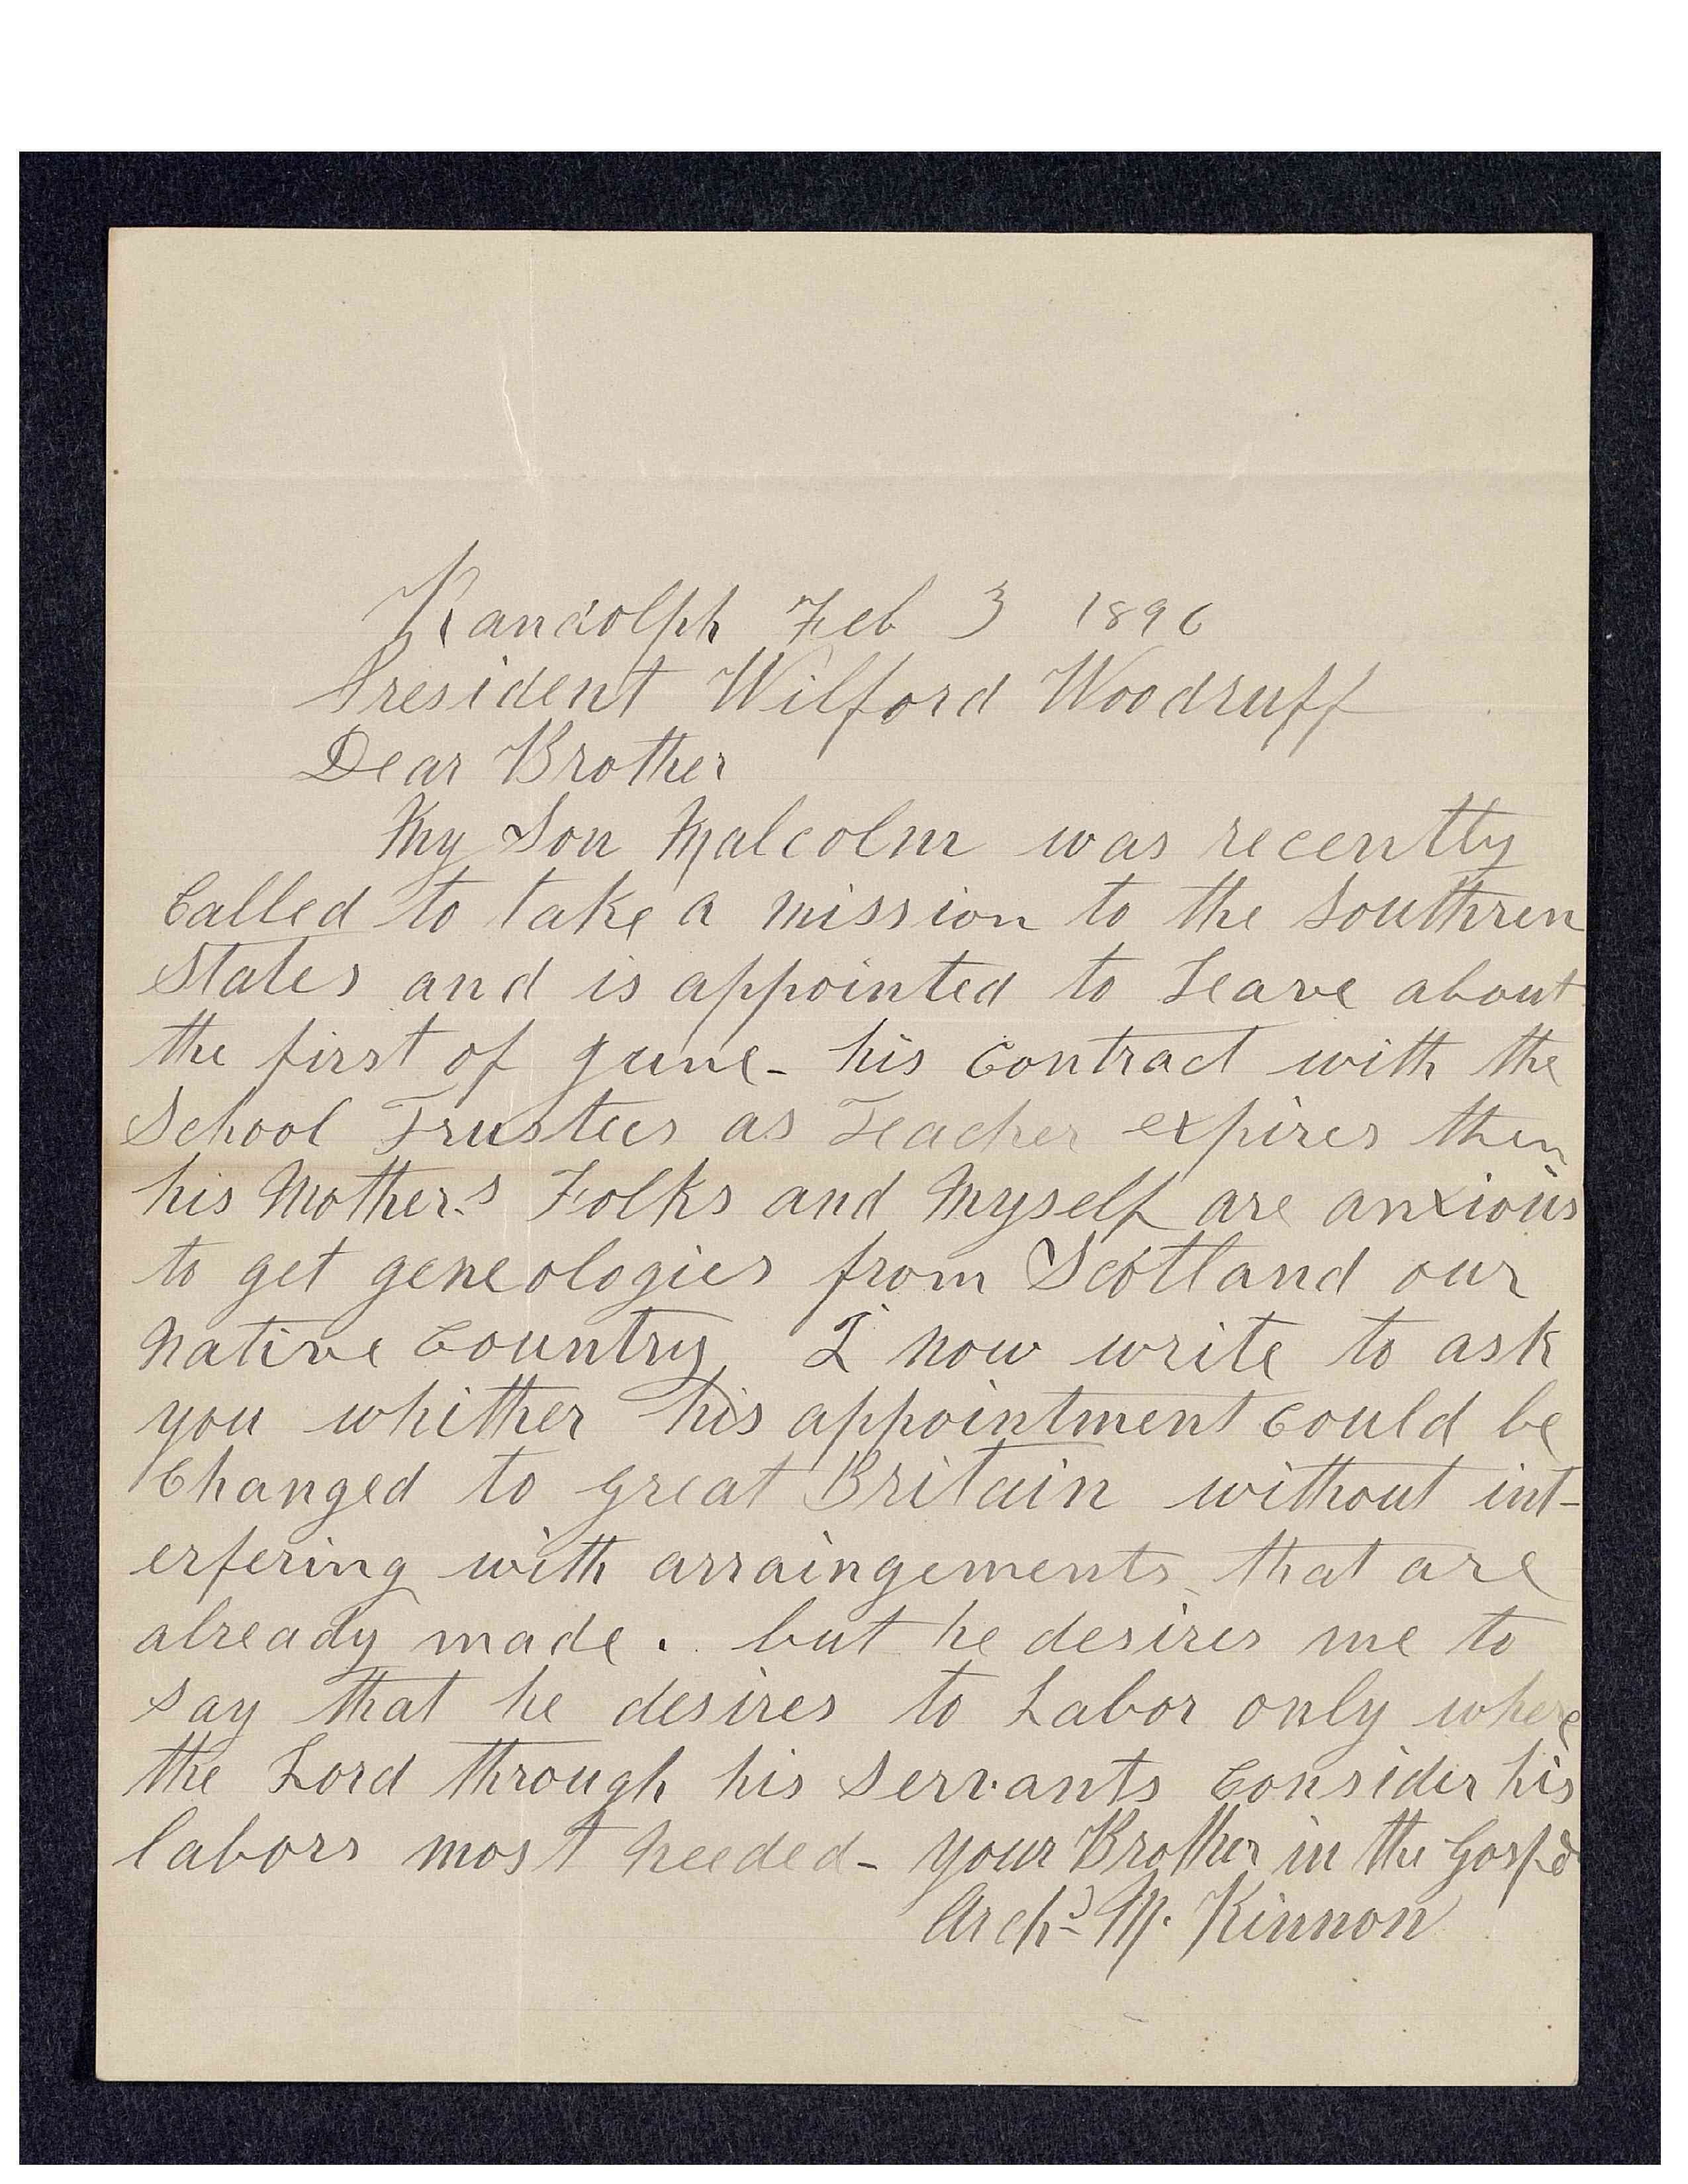 Randolph Feb 3 1896
President Wilford Woodruff
Dear Brother
My Son Malcolm was recently
Called to take a mission to the Southren
States and is appointed to Leave about
the first of June - his Contract with the
School Trustees as Teacher expires then
his Mother's Folks and Myself are anxious
to get geneologies from Scotland our
Native Country I now write to ask
you whither his appointment Could be
Changed to great Britain without int-
erfering with arraingements that are
already made. but he desires me to
say that he desires to Labor only where
the Lord through his Servants Consider his
labors most needed - your Brother in the Gospel
Archd M. Kinnon